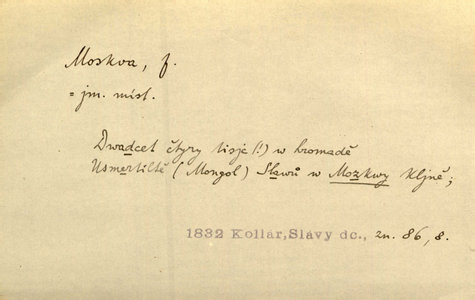 Moskva, f.
= jm. míst.
Dwadcet čtyry tisjc(!) w hromadě
Usmertiltě (Mongol) Slawů w Mozkwy Kljně;
1832 Kollár, Slávy dc., zn. 86, 8.